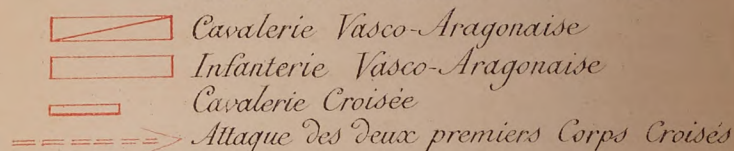 Cavalerie Vasco-Aragonaise
Infanterie Vasco-Aragonaise
Cavalerie Croisée
Attaque des deux premiers Corps Croisés